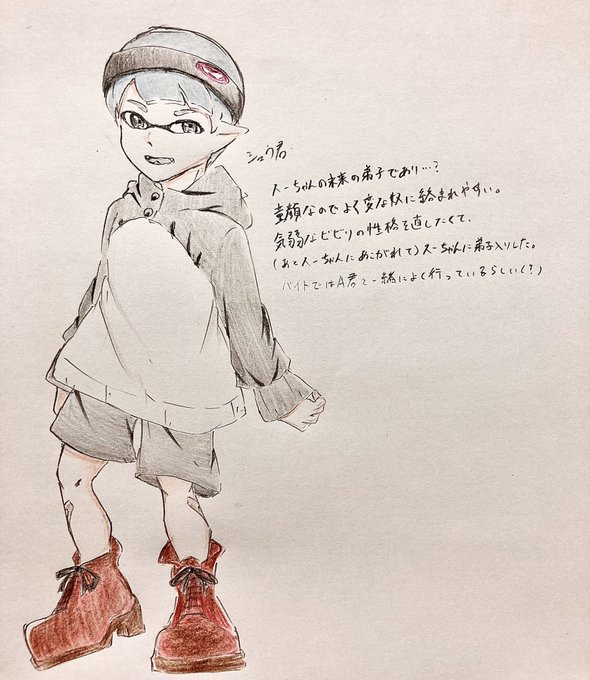 シュウ君
スーちゃんの未来の弟子であり…?
童顔なのでよく変な奴に絡まれやすい。
気弱なビビりの性格を直したくて、
(あとスーちゃんにあこがれて)スーちゃんに弟子入りした。
バイトではA君と一緒によく行っているらしい(?)